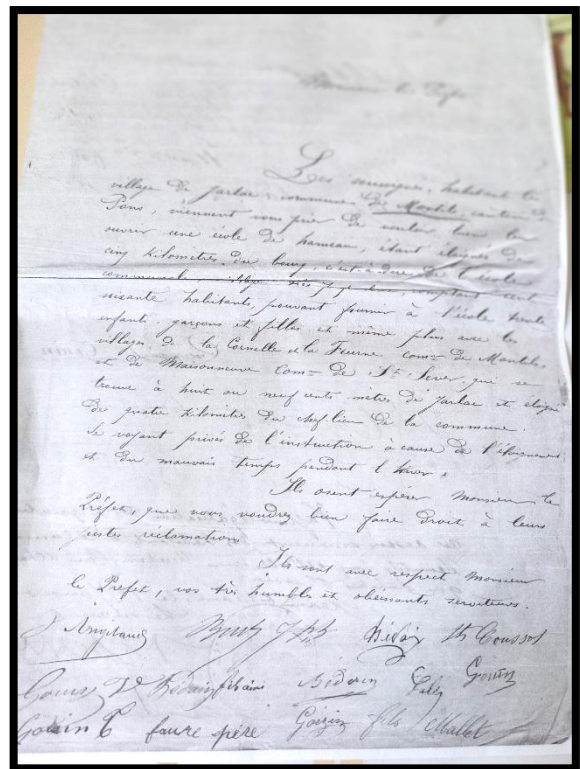 Monsieur le Préfet
Les soussignés, habitant le
village de Jarlac, commune de Montils, canton de
Pons, viennent vous prier de vouloir bien leur
ouvrir une école de hameau, étant éloignés de
cinq kilomètres du bourg, c'est-à-dire de l'école
communale. village comptant cent
soixante habitants, pouvant fournir à l'école trente
enfants, garçons et filles et même plus avec les
villages de la Cornille et la Furne com.ne de Montils,
et de Maisonneuve Com.ne de St. Sever, qui se
trouve à huit ou neuf cents mètres de Jarlac et éloigné
de quatre kilomètres du chef lieu de la commune.
Se voyant privés de l'instruction à cause de l'éloignement
et du mauvais temps pendant l'hiver,
Ils osent espérer Monsieur le
Préfet, que vous voudrez bien faire droit à leurs
justes réclamations
Ils sont avec respect Monsieur
le Préfet, vos très humbles et obéissants serviteurs.
Th Coussot
Gouin
Gouin faure père fils Mallet